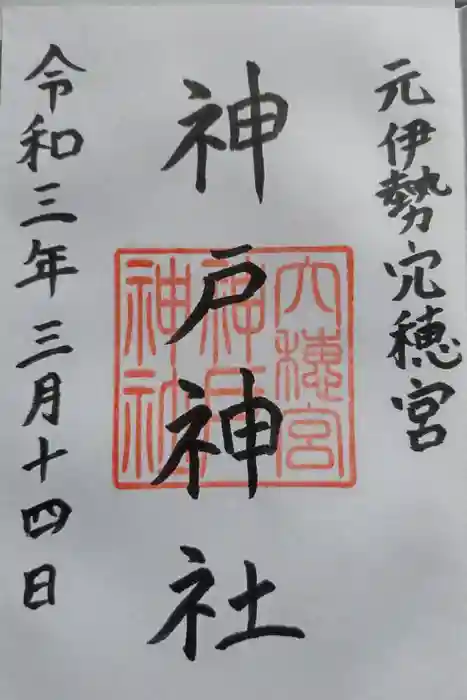 元伊勢宍穂宮
神戸神社
穴穂宮
神戸
神社
令和三年三月十四日